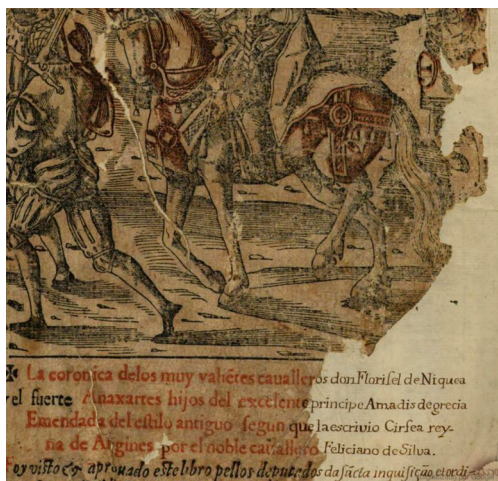 La coronica delos muy valiẽtes caualleros don Florisel de Niquea
y el fuerte Anaxartes hijos del excelente principe Amadis de grecia
Emendada del estilo antiguo segun que la escrivio Cirfea rey-
na de Argines por el noble cavallero Feliciano de Silva.
Foy visto & aprouado este libro pellos deputados da sãcta inquisição et ordi